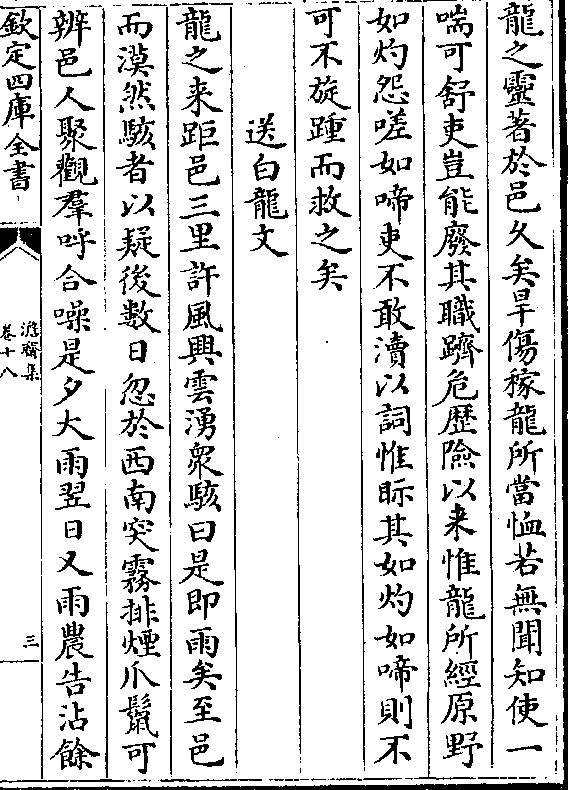 龍之靈著於邑久矣旱傷稼龍所當恤若無聞知使一
喘可舒吏豈能廢其職躋危歴險以来惟龍所經原野
如灼怨嗟如啼吏不敢瀆以詞惟眎其如灼如啼則不
可不旋踵而救之矣
送白龍文
龍之来距邑三里許風興雲湧衆駭曰是即雨矣至邑
而漠然駭者以疑後數日忽於西南突霧排煙爪鬛可
辨邑人聚觀羣呼合噪是夕大雨翌日又雨農告沾餘
欽定四庫全書
澹齋集
卷十八
三